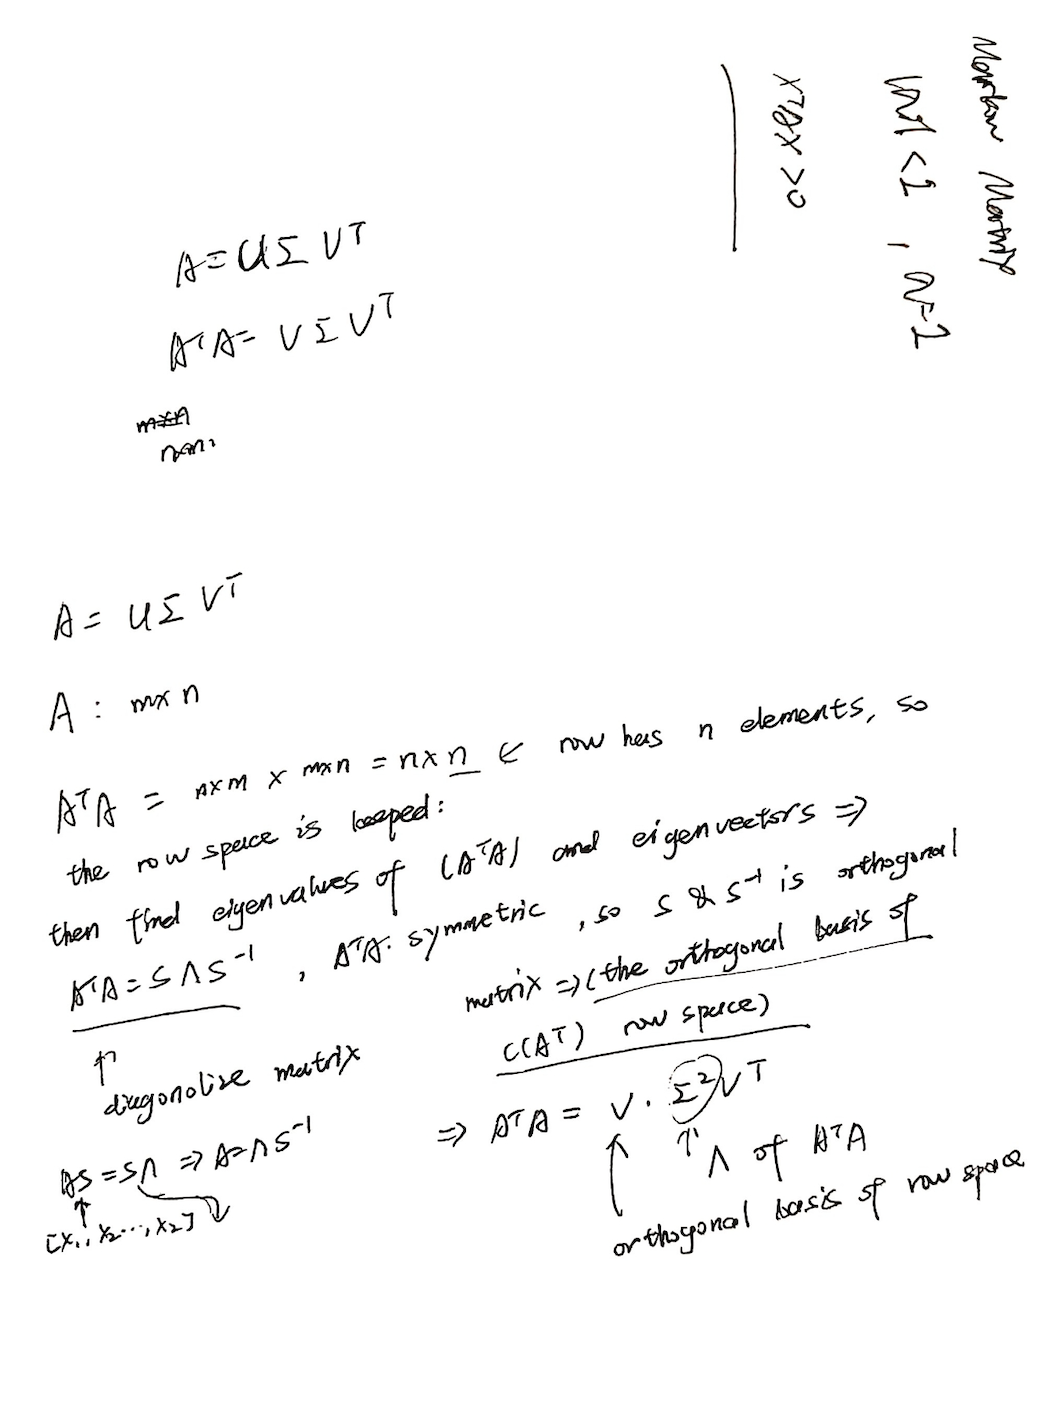 Markov Matrix
|λ|<1 , λ=1
xᵀAx>0
A=UΣVᵀ
AᵀA= VΣVᵀ
m×n
n×n
A= UΣVᵀ
A : m×n
AᵀA = n×m × m×n = n×n ← row has n elements, so
the row space is keeped:
then find eigenvalues of (AᵀA) and eigenvectors ⇒
AᵀA=SΛS⁻¹ , AᵀA: symmetric , so S & S⁻¹ is orthogonal
matrix ⇒ (the orthogonal basis of
C(Aᵀ) row space)
↑
diagonolize matrix
⇒ AᵀA = V·Σ²Vᵀ
↑ Λ of AᵀA
AS=SΛ ⇒ A=ΛS⁻¹
[x₁, x₂…, x₂]
orthogonal basis of row space